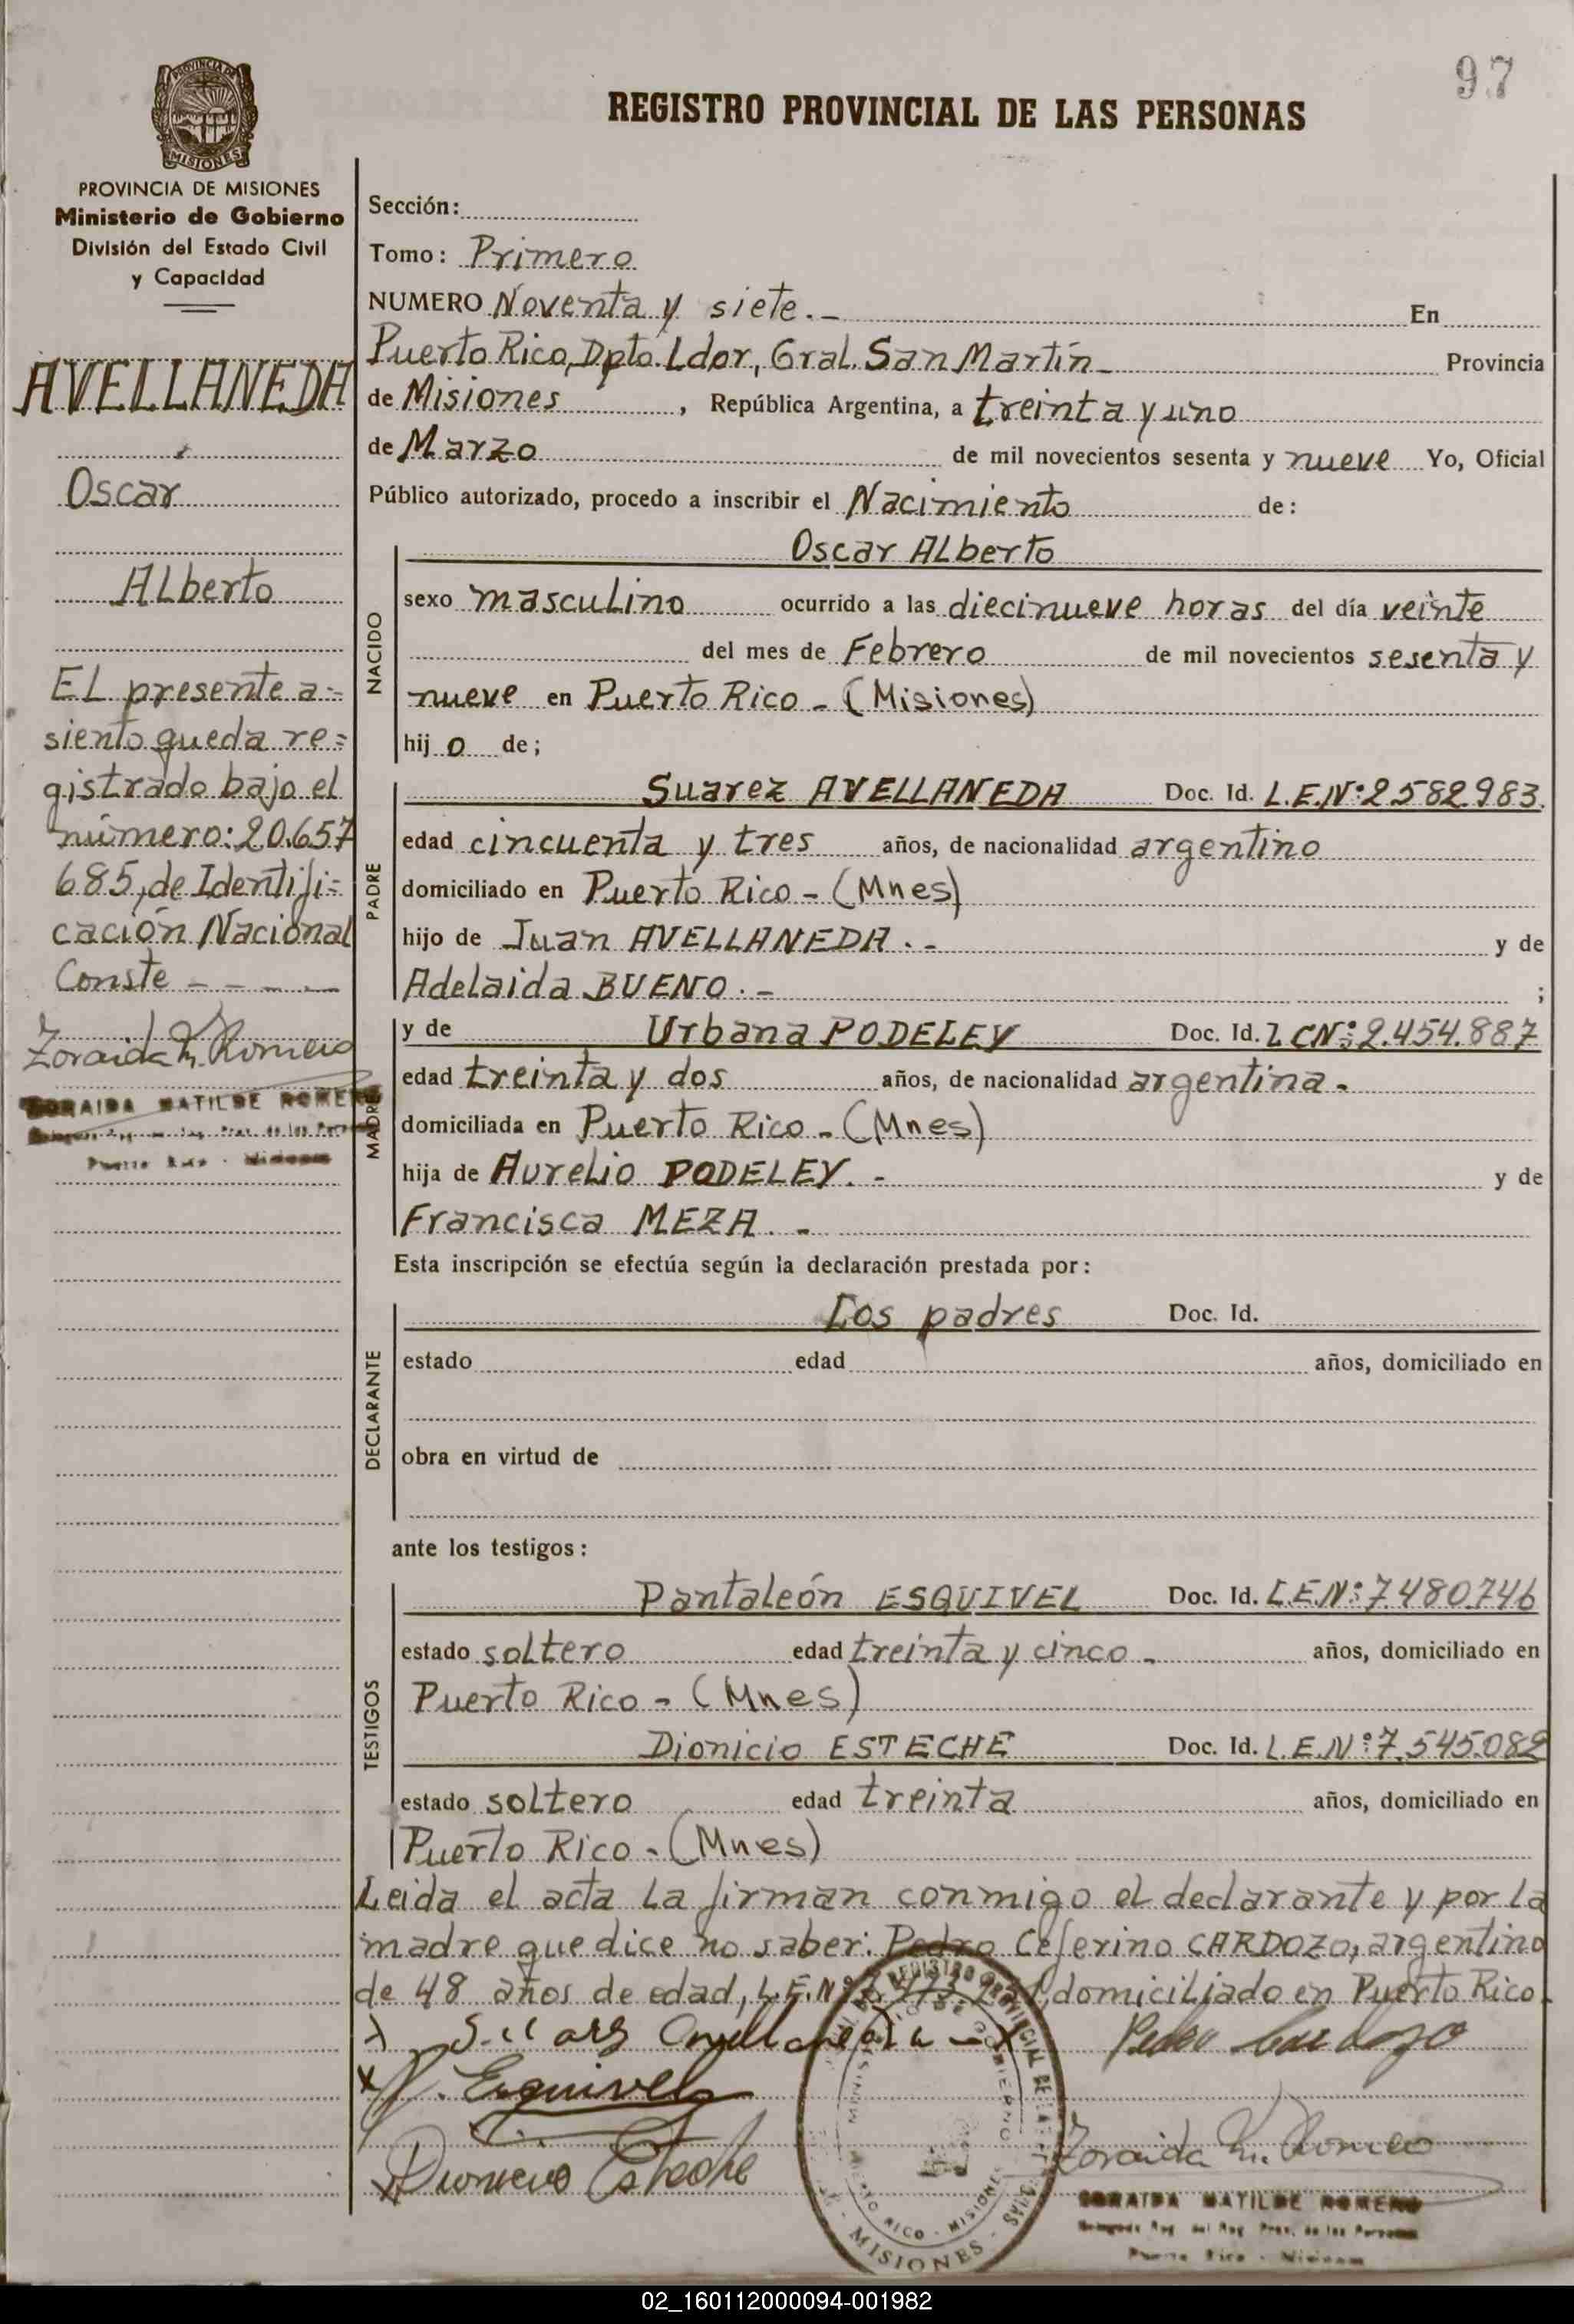 97
REGISTRO PROVINCIAL DE LAS PERSONAS
PROVINCIA DE
MISIONES
PROVINCIA DE MISIONES
Ministerio de Gobierno
División del Estado Civil
y Capacidad
AVELLANEDA
Oscar
ALberto
EL presente a=
siento queda re=
gistrado bajo el
número: 20.657
685, de Identifi=
cación Nacional
Conste - - - -
Zoraida M. Romero
ZORAIDA MATILDE ROMERO
Puerto Rico - Misiones
Sección:
Tomo: Primero
NUMERO Noventa y siete.- En
Puerto Rico, Dpto. Ldor, Gral. San Martín - Provincia
de Misiones, República Argentina, a treinta y uno
de Marzo de mil novecientos sesenta y nueve Yo, Oficial
Público autorizado, procedo a inscribir el Nacimiento de:
NACIDO
Oscar ALberto
sexo mascuLino ocurrido a las diecinueve horas del día veinte
del mes de Febrero de mil novecientos sesenta y
nueve en Puerto Rico - (Misiones)
hijo de;
PADRE
Suarez AVELLANEDA Doc. Id. L.E.Nº: 2582983.
edad cincuenta y tres años, de nacionalidad argentino
domiciliado en Puerto Rico - (Mnes)
hijo de Juan AVELLANEDA.- y de
AdeLaida BUENO.- ;
MADRE
y de Urbana PODELEY Doc. Id. LCNº: 2.454.887
edad treinta y dos años, de nacionalidad argentina.
domiciliada en Puerto Rico - (Mnes)
hija de AureLio PODELEY.- y de
Francisca MEZA.-
Esta inscripción se efectúa según la declaración prestada por:
DECLARANTE
Los padres Doc. Id.
estado edad años, domiciliado en
obra en virtud de
ante los testigos:
TESTIGOS
Pantaleón ESQUIVEL Doc. Id. L.E.Nº: 7480746
estado soLtero edad treinta y cinco - años, domiciliado en
Puerto Rico - (Mnes)
Dionicio ESTECHE Doc. Id. L.E.Nº: 7.545.082
estado soLtero edad treinta años, domiciliado en
Puerto Rico - (Mnes)
Leida el acta La firman conmigo el declarante y por La
madre que dice no saber: Pedro Ceferino CARDOZO, argentino
de 48 años de edad, L.E.Nº domiciLiado en Puerto Rico.
Pedro Cardozo
Esquivel
Dionicio Esteche
Zoraida M. Romero
ZORAIDA MATILDE ROMERO
Delegada Reg. del Reg. Prov. de las Personas
Puerto Rico - Misiones
REGISTRO PROVINCIAL DE LAS PERSONAS
MINISTERIO DE GOBIERNO
PUERTO RICO - MISIONES
MISIONES
02_160112000094-001982